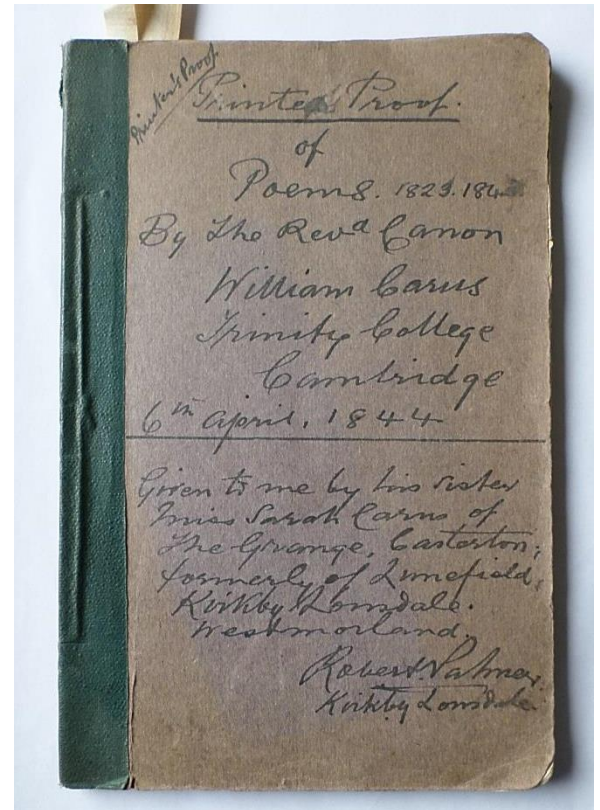 Printer's Proof
Printed Proof.
of
Poems. 1823.184
By The Revd Canon
William Carus
Trinity College
Cambridge
6th April, 1844
Given to me by his sister
Miss Sarah Carus of
The Grange, Casterton,
formerly of Lunefield,
Kirkby Lonsdale.
Westmorland.
Robert Palmer.
Kirkby Lonsdale